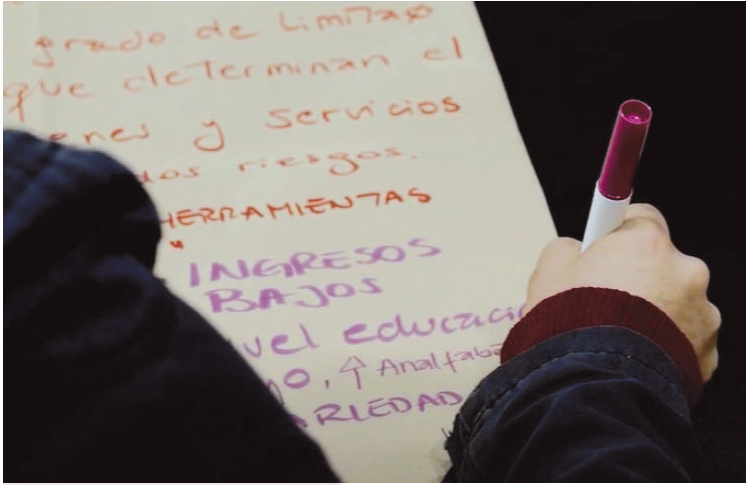 grado de Limi7aɔ
que determinan el
ones y servicios
dos riesgos.
HERRAMIENTAS
"
INGRESOS
BAJOS
vel educaci
O, ↑ Analfab
ARIEDAD